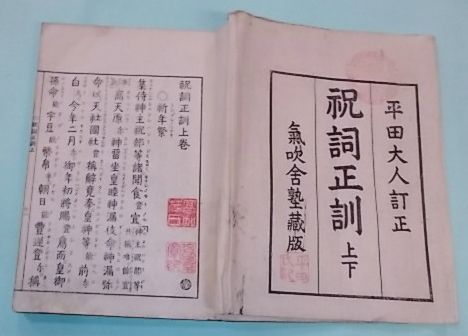 平田大人訂正
祝詞正訓 上下
氣吹舍塾藏版
祝詞正訓上卷
○祈年祭
集侍神主祝部等諸聞食登宣
高天原尓神留坐皇睦神漏伎命神漏弥
命以天社國社登稱辭竟奉皇神等能前尓
白久今年二月尓御年初將賜登爲而皇御
孫命能宇豆能幣帛乎朝日能豊逆登尓稱